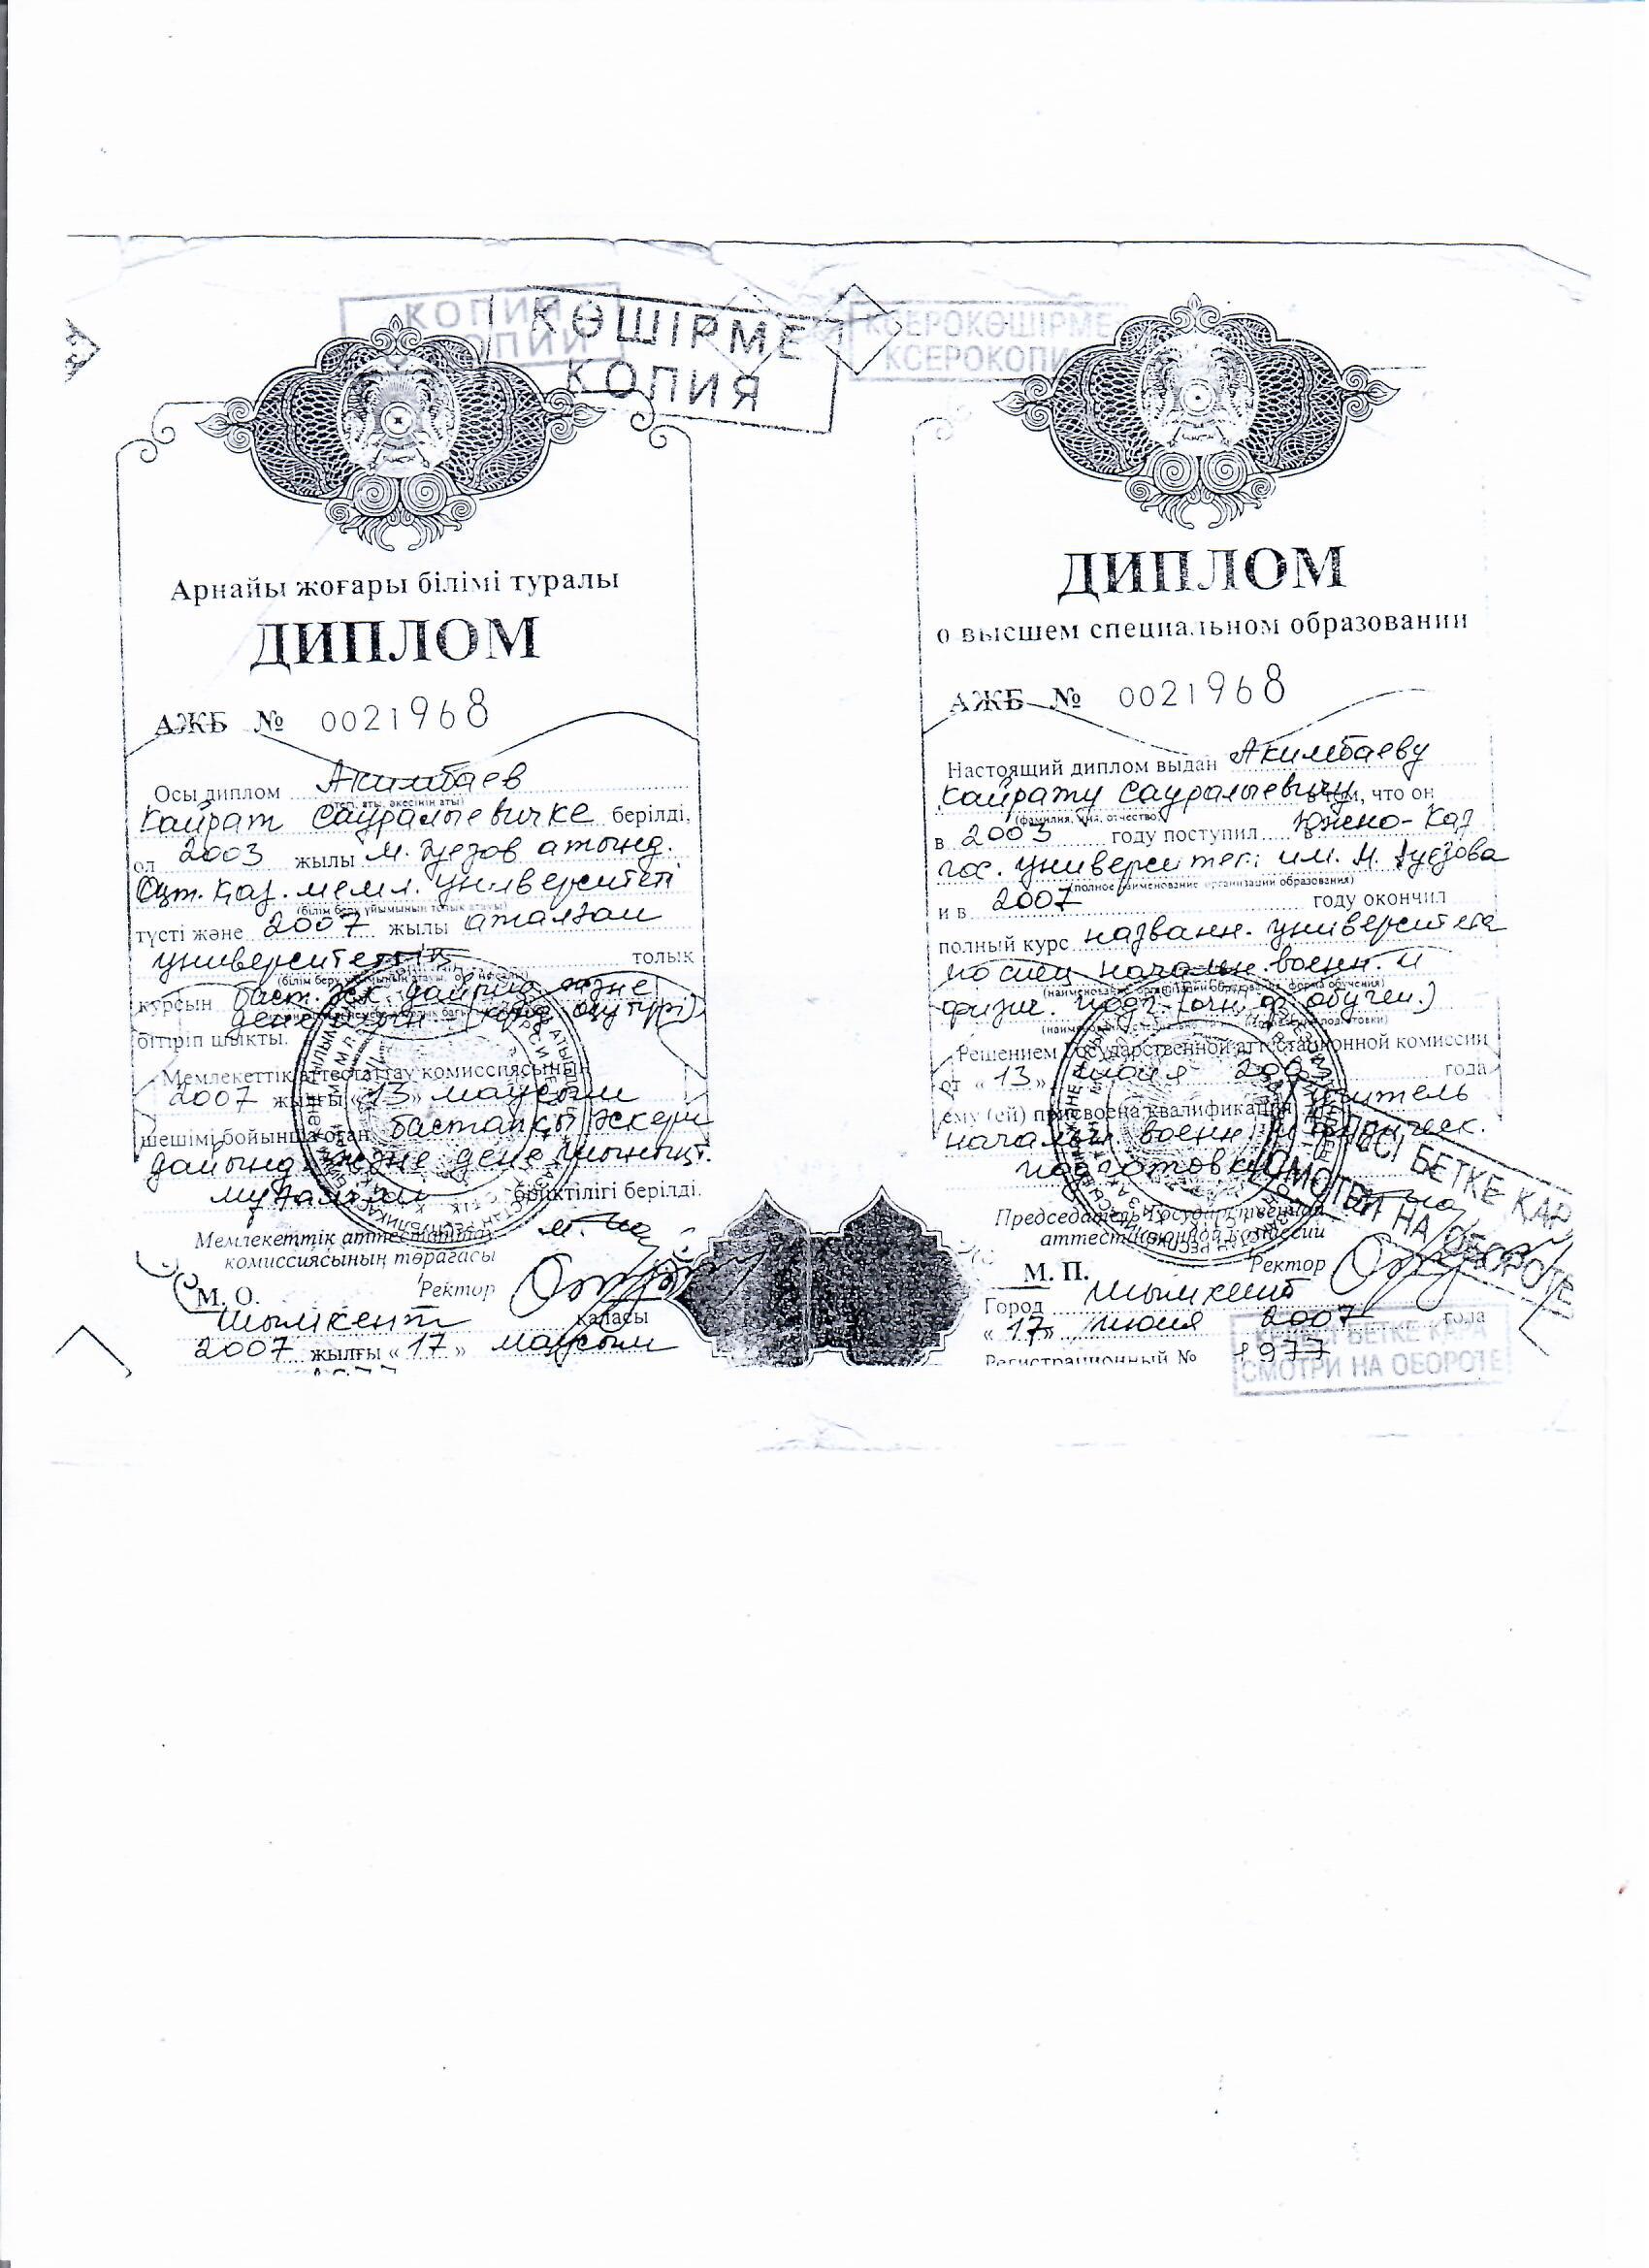 КОПИЯ
КОПИИ
КӨШІРМЕ
КОПИЯ
Арнайы жоғары білімі туралы
ДИПЛОМ
АЖБ № 0021968
Осы диплом Акимбаев
(тегі, аты, әкесінің аты)
Кайрат Сауралыевичке берілді,
ол 2003 жылы М. Әуезов атынд.
Оңт. Қаз. мемл. университеті
(білім беру ұйымының толық атауы)
түсті және 2007 жылы аталған
университеттің толық
курсын баст. әск. дайынд. және
дене шын. (күнд. оқу түрі)
бітіріп шықты.
Мемлекеттік аттестаттау комиссиясының
2007 жылғы «13» маусым
шешімі бойынша оған бастапқы әскери
дайынд. және дене шынықт.
мұғалімі біліктілігі берілді.
Мемлекеттік аттестаттау
комиссиясының төрағасы
Ректор
М. О.
Шымкент қаласы
2007 жылғы «17» маусым
КСЕРОКӨШІРМЕ
КСЕРОКОПИ
ДИПЛОМ
о высшем специальном образовании
АЖБ № 0021968
Настоящий диплом выдан Акимбаеву
Кайрату Сауралыевичу в том, что он
(фамилия, имя, отчество)
в 2003 году поступил в Южно-Каз
гос. университет им. М. Ауезова
(полное наименование организации образования)
и в 2007 году окончил
полный курс названн. университета
по спец. начальн. военн. и
физич. подг. (очн. ф. обучен.)
Решением Государственной аттестационной комиссии
от «13» июня года
ему (ей) присвоена квалификация учитель
начальн. военн. и физическ.
подготовки
Председатель Государственной
аттестационной комиссии
Ректор
М. П.
Город Шымкент
«17» июня 2007 года
Регистрационный № 1977
БЕТКЕ ҚАРА
СМОТРИ НА ОБОРОТЕ
БЕТКЕ ҚАРА
СМОТРИ НА ОБОРОТЕ